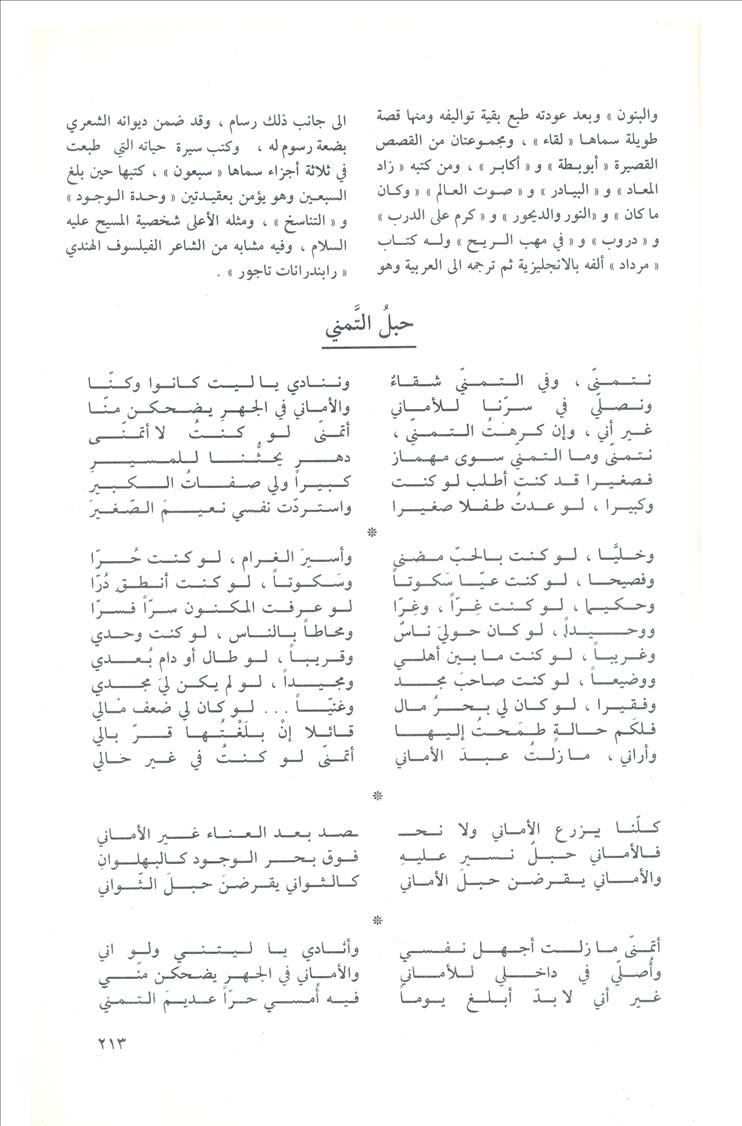 والبنون » وبعد عودته طبع بقية تواليفه ومنها قصة
طويلة سماها « لقاء » ، ومجموعتان من القصص
القصيرة « أبو بطة » و « أكابر » ، ومن كتبه « زاد
المعاد » و « البيادر » و « صوت العالم » « وكان
ما كان » و « النور والديحور » و « كرم على الدرب »
و « دروب » و « في مهب الريح » وله كتاب
« مرداد » ألفه بالانجليزية ثم ترجمه الى العربية وهو
الى جانب ذلك رسام ، وقد ضمن ديوانه الشعري
بضعة رسوم له ، وكتب سيرة حياته التي طبعت
في ثلاثة أجزاء سماها « سبعون » ، كتبها حين بلغ
السبعين وهو يؤمن بعقيدتين « وحدة الوجود »
و « التناسخ » ، ومثله الأعلى شخصية المسيح عليه
السلام ، وفيه مشابه من الشاعر الفيلسوف الهندي
« رابندرانات تاجور » .
حبلُ التَّمني
نتمنّى ، وفي التمنيّ شقاءُ ونـنادي يا ليت كانوا وكنّا
ونصلّي في سرّنا للأماني والأماني في الجهرِ يضحكن منّا
غير أني ، وإن كرهتُ التمني ، أتمنىّ لو كنتُ لا أتمنّى
نتمنىّ وما التمني سوى مهماز دهرٍ يحثُّنا للمسيرِ
فصغيرا قد كنت أطلب لو كنت كبيراً ولي صفاتُ الكبيرِ
وكبيرا ، لو عدتُ طفلا صغيرا واستردّت نفسي نعيمَ الصّغيرَ
*
وخليَّا ، لو كنت بالحبّ مضنى وأسيرَ الغرام ، لو كنت حُرّا
وفصيحا ، لو كنت عيّا سَكوتاً وسَكوتاً ، لو كنت أنطق دُرّا
وحكيما ، لو كنت غِرّاً ، وغِرّا لو عرفت المكنون سرّاً فسرّا
ووحيداً ، لو كان حوليَ ناسٌ ومحاطاً بالناس ، لو كنت وحدي
وغريباً ، لو كنت ما بين أهلي وقريباً ، لو طال أو دام بُعدي
ووضيعاً ، لو كنت صاحبَ مجد ومجيداً ، لو لم يكن ليَ مجدي
وفقيرا ، لو كان لي بحرُ مال وغنيّاً ... لو كان لي ضعف مالي
فلكَم حالةٍ طمَحتُ إليها قائلا إنْ بلَغْتُها قرّ بالي
وأراني ، ما زلتُ عبدَ الأماني أتمنىّ لو كنتُ في غير حالي
*
كلّنا يزرع الأماني ولا نحـ ـصد بعد العناء غير الأماني
فالأماني حبلٌ نسير عليهِ فوق بحر الوجود كالبهلوانِ
والأماني يقرضن حبلَ الأماني كالثواني يقرضنَ حبلَ الثّواني
*
أتمنىّ ما زلت أجهل نفسي وأنادي يا ليتني ولو اني
وأُصلّي في داخلي للأماني والأماني في الجهرِ يضحكن منّي
غير أني لا بدّ أبلغ يوماً فيه أُمسي حرّاً عديمَ التمنيّ
٢١٣